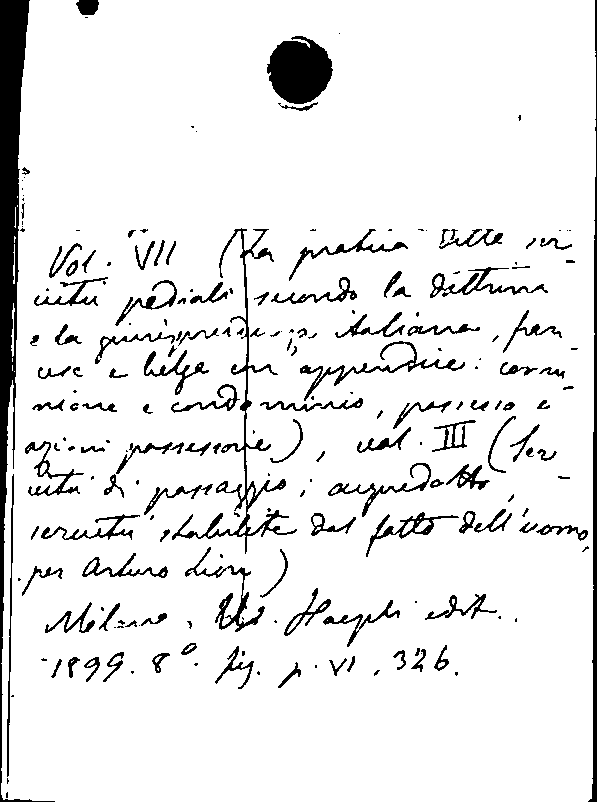 Vol. VII (La pratica delle ser-
vitù prediali secondo la dottrina
e la giurisprudenza italiana, fran-
cese e belga con appendice: comu-
nione e condominio, possesso e
azioni possessorie), vol. III (Ser-
vitù di passaggio; acquedotto,
servitù stabilite dal fatto dell'uomo,
per Arturo Lion)
Milano, Hoepli edit.
1899. 8°. fig. p. VI, 326.